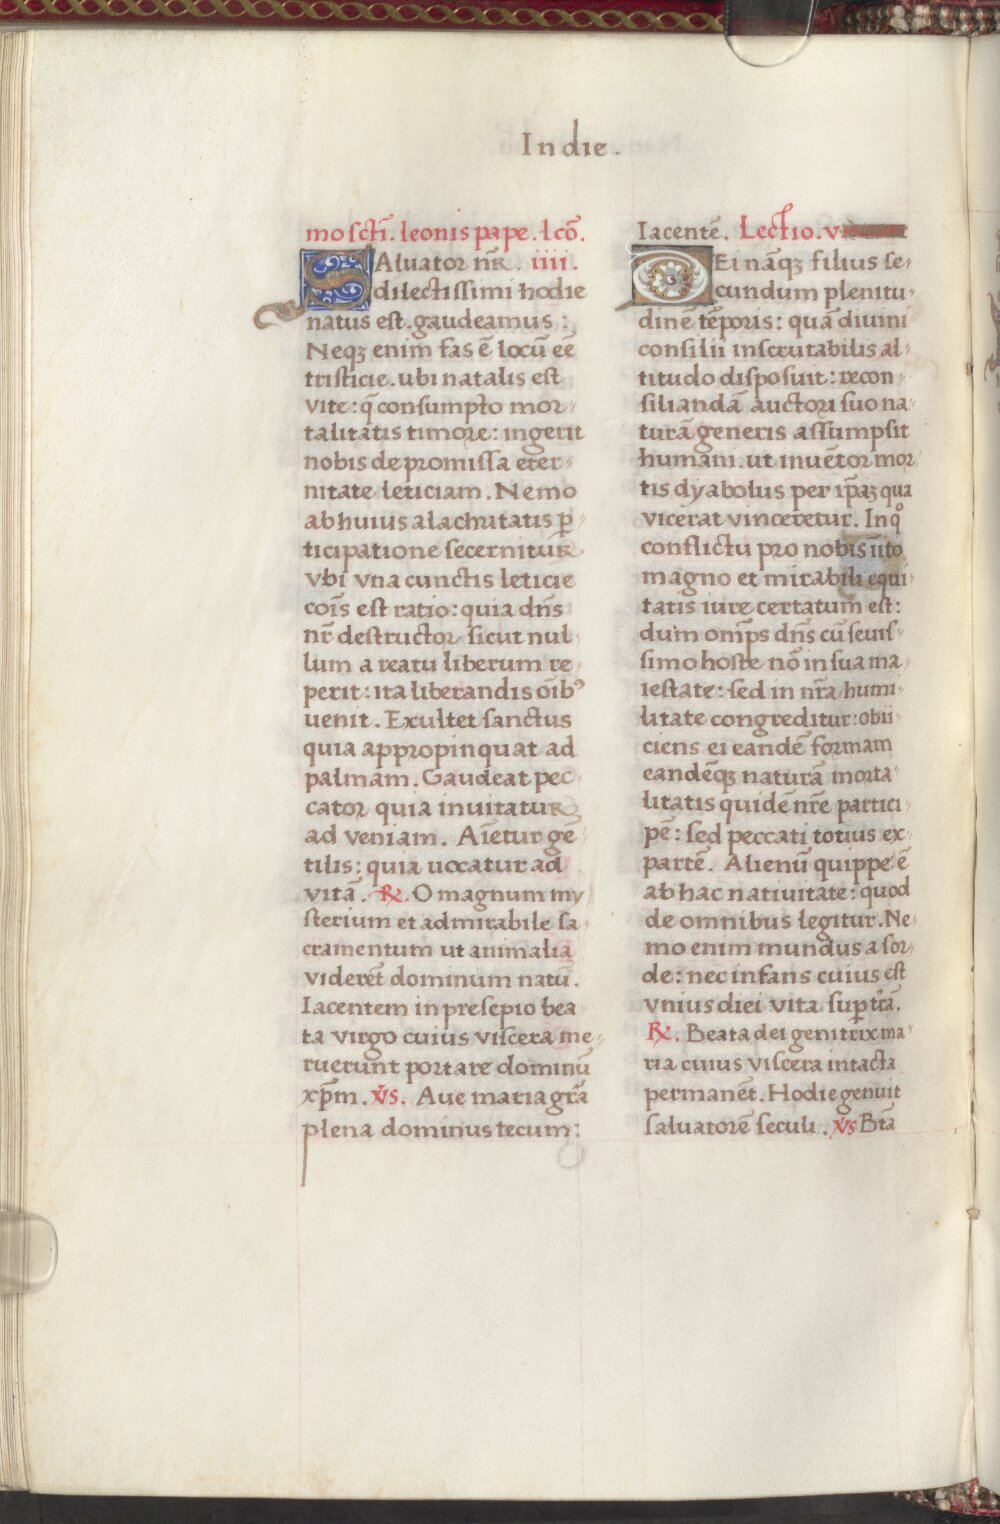 In die.
mo sctī. leonis pape. lcō.
SAluator nr̄. iiii.
dilectissimi hodie
natus est. gaudeamus:
Neqꝫ enim fas ē locū eē
tristicie. ubi natalis est
vite: q̄ consumpto mor-
talitatis timore: ingerit
nobis de promissa eter-
nitate leticiam. Nemo
ab huius alachritatis ꝑ-
ticipatione secernitur
vbi vna cunctis leticie
cois̄ est ratio: quia dn̄s
nr̄ destructor sicut nul-
lum a reatu liberum re-
perit: ita liberandis oībꝰ
uenit. Exultet sanctus
quia appropinquat ad
palmam. Gaudeat pec-
cator quia inuitatur
ad veniam. Aīetur ge-
tilis: quia uocatur ad
vitā. ℟. O magnum my
sterium et admirabile sa-
cramentum ut animalia
viderēt dominum natū.
Iacentem in presepio bea-
ta virgo cuius viscera me-
ruerunt portare dominū
xp̄m. v̄s. Aue maria gr̄a
plena dominus tecum:
Iacentē. Lectio. v
DEi nāqꝫ filius se-
cundum plenitu-
dinē tēporis: quā diuini
consilii inscrutabilis al-
titudo disposuit: recon-
siliandā auctori suo na-
turā generis assumpsit
humani. ut inuētor mor-
tis dyabolus per ip̄aꝫ qua
vicerat vinceretur. In qͦ
conflictu pro nobis īito
magno et mirabili equi-
tatis iure certatum est:
dum omp̄s dn̄s cū seuis-
simo hoste nō in sua ma-
iestate: sed in nr̄a humi-
litate congreditur: obii-
ciens ei eandē formam
eandēqꝫ naturā morta-
litatis quidē nr̄e partici-
pē: sed peccati totius ex-
partē. Alienū quippe ē
ab hac natiuitate: quod
de omnibus legitur. Ne-
mo enim mundus a sor-
de: nec infans cuius est
vnius diei vita suꝑ tr̄ā.
℟. Beata dei genitrix ma-
ria cuius viscera intacta
permanēt. Hodie genuit
saluatorē seculi. v̄s Bt̄a